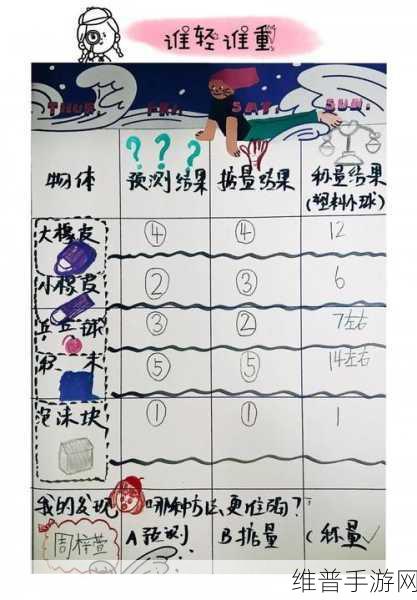 谁轻谁重
THUR. FRI. SAT. SUN.
? ? ?
物体 预测结果 掂量结果 称量结果
(塑料小球)
大橡皮 ④ ④ 12
小橡皮 ② ③ 6
乒乓球 ③ ② 7左右
⑤ ⑤ 14左右
泡沫块 ① ① 1
我的发现 哪种方法更准确?
周梓萱 A预测 B掂量 C称量✓
维普手游网